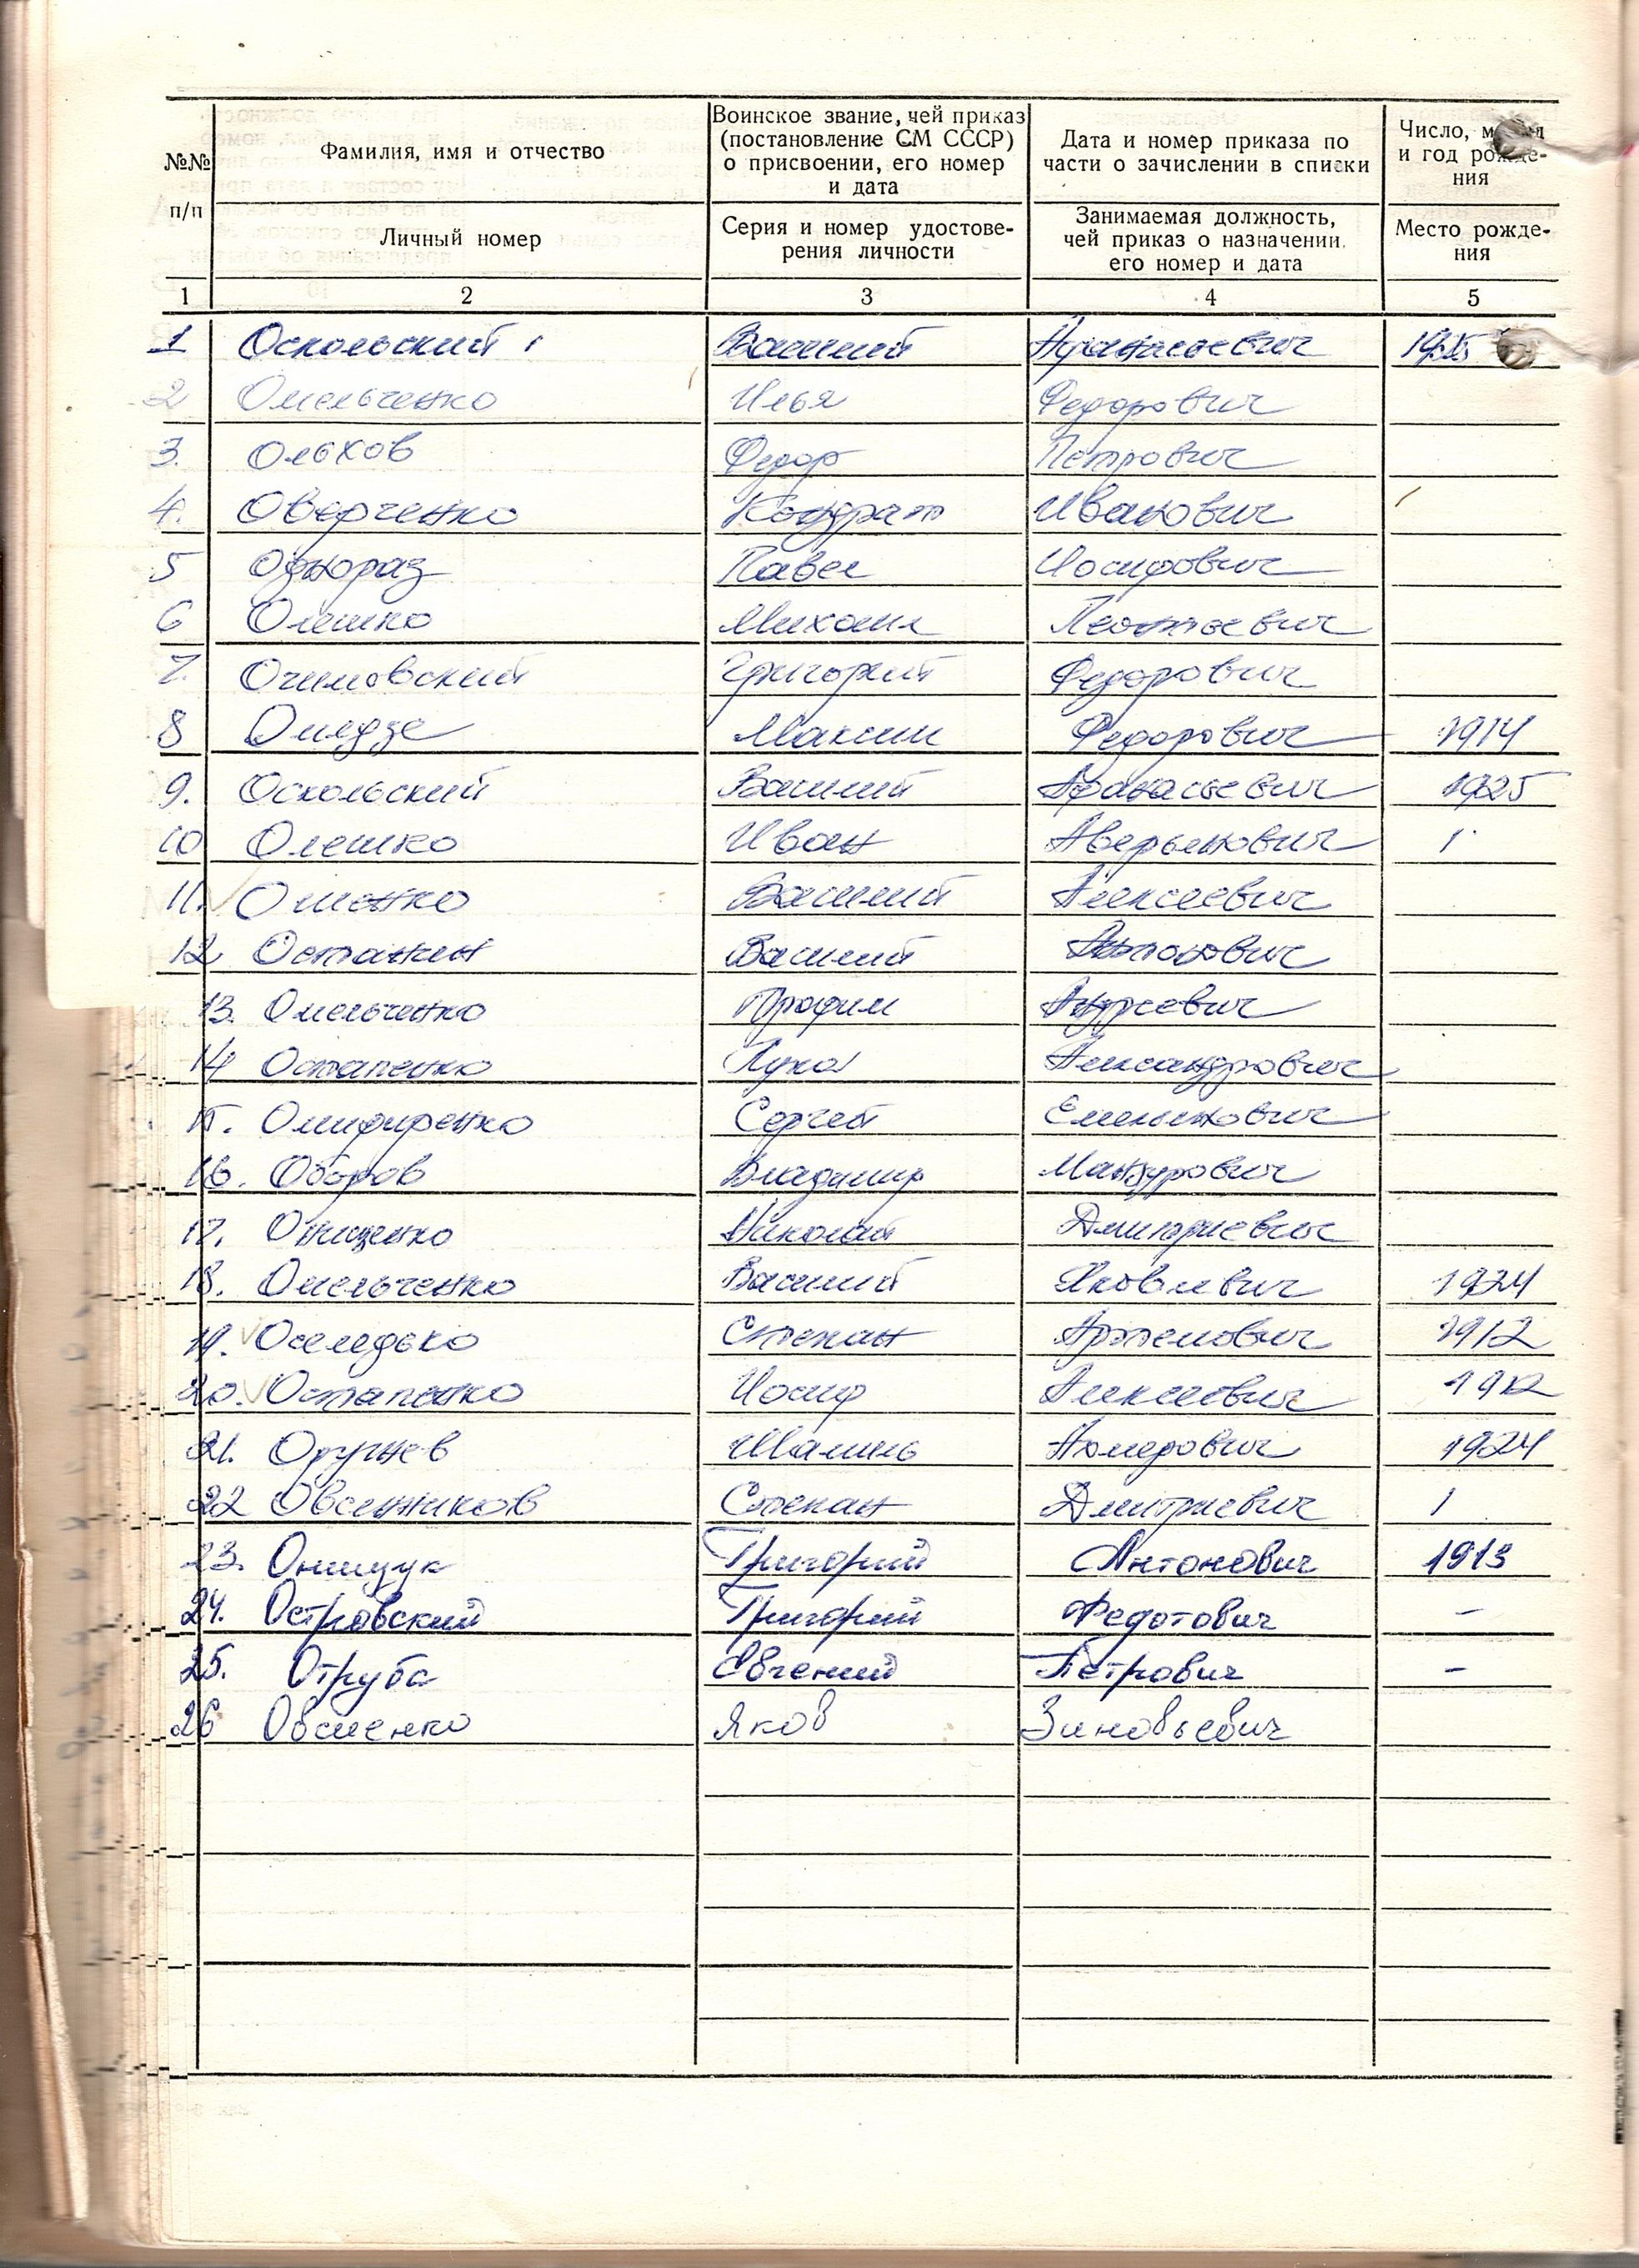 №№ п/п
Фамилия, имя и отчество
Личный номер
Воинское звание, чей приказ
(постановление СМ СССР)
о присвоении, его номер
и дата
Серия и номер удостове-
рения личности
Дата и номер приказа по
части о зачислении в списки
Занимаемая должность,
чей приказ о назначении,
его номер и дата
Число,
и год рожде-
ния
Место рожде-
ния
1 2 3 4 5
1 Оскольский Василий Афанасьевич 1925
2 Омельченко Илья Федорович
3. Ольхов Федор Петрович
4. Оверченко Кондрат Иванович
5 Однораз Павел Иосифович
6 Олешко Михаил Леонтьевич
7. Очимовский Григорий Федорович
8 Максим Федорович 1914
9. Оскольский Василий Афанасьевич 1925
10 Олешко Иван Аверьянович 1
11. Василий Алексеевич
12 Останин Василий Антонович
13. Омельченко Трофим Андреевич
14 Остапенко Лука Александрович
15. Сергей Емельянович
16. Оборов Владимир
17. Онищенко Николай Дмитриевич
18. Омельченко Василий Яковлевич 1924
19. Оселедько Степан Артемович 1912
20. Остапенко Иосиф Алексеевич 1912
21. Оружев 1924
22 Овсянников Степан Дмитриевич 1
23. Онищук Григорий Антонович 1913
24. Островский Григорий Федотович –
25. Отруба Евгений Петрович –
26 Овсиенко Яков Зиновьевич